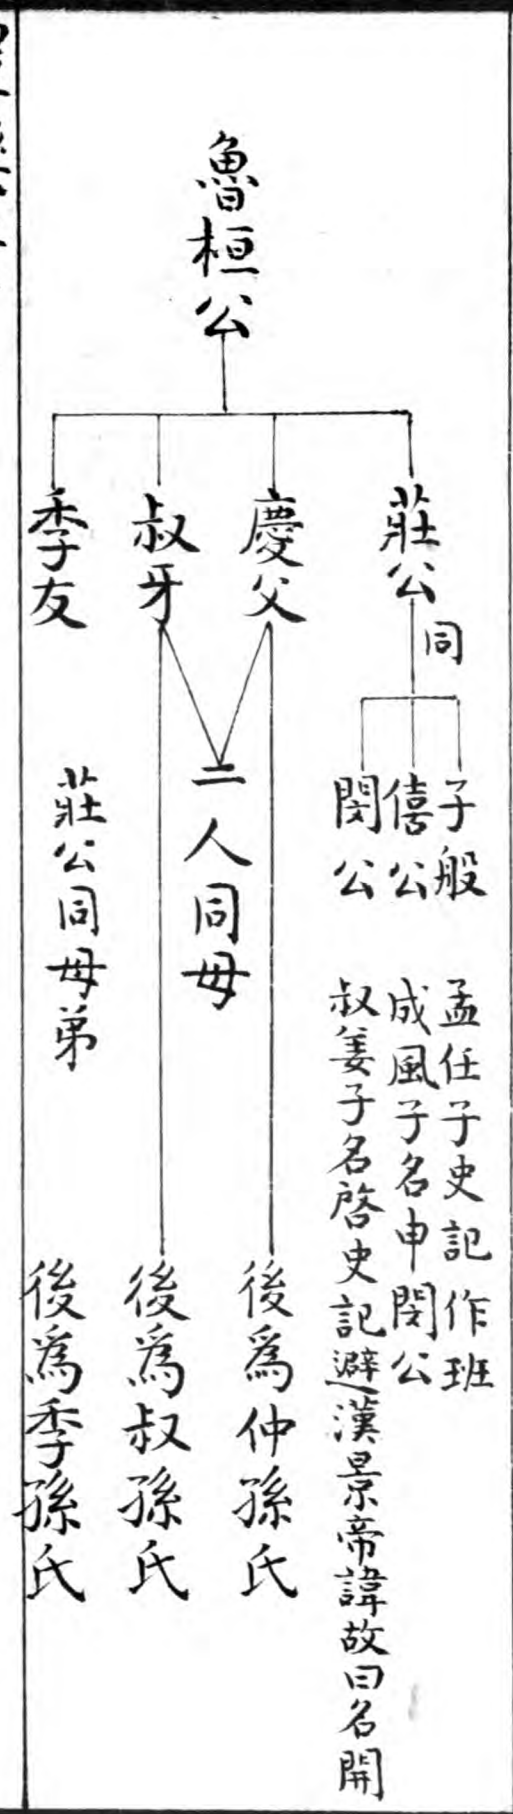 魯桓公
莊公同
子般 孟任子史記作班
僖公 成風子名申閔公
閔公 叔姜子名啓史記避漢景帝諱故曰名開
慶父
後爲仲孫氏
二人同母
叔牙
後爲叔孫氏
季友
莊公同母弟
後爲季孫氏